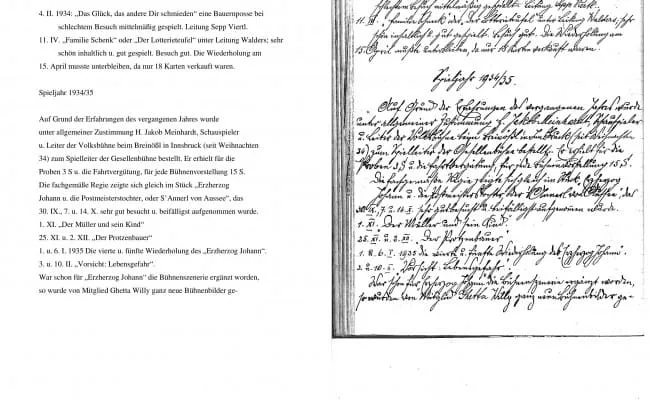 4. II. 1934: „Das Glück, das andere Dir schmieden“ eine Bauernposse bei
schlechtem Besuch mittelmäßig gespielt. Leitung Sepp Viertl.
11. IV. „Familie Schenk“ oder „Der Lotterieteufel“ unter Leitung Walders; sehr
schön inhaltlich u. gut gespielt. Besuch gut. Die Wiederholung am
15. April musste unterbleiben, da nur 18 Karten verkauft waren.
Spieljahr 1934/35
Auf Grund der Erfahrungen des vergangenen Jahres wurde
unter allgemeiner Zustimmung H. Jakob Meinhardt, Schauspieler
u. Leiter der Volksbühne beim Breinößl in Innsbruck (seit Weihnachten
34) zum Spielleiter der Gesellenbühne bestellt. Er erhält für die
Proben 3 S u. die Fahrtvergütung, für jede Bühnenvorstellung 15 S.
Die fachgemäße Regie zeigte sich gleich im Stück „Erzherzog
Johann u. die Postmeisterstochter, oder S’Annerl von Aussee“, das
30. IX., 7. u. 14. X. sehr gut besucht u. beifälligst aufgenommen wurde.
1. XI. „Der Müller und sein Kind“
25. XI. u. 2. XII. „Der Protzenbauer“
1. u. 6. I. 1935 Die vierte u. fünfte Wiederholung des „Erzherzog Johann“.
3. u. 10. II. „Vorsicht: Lebensgefahr“.
War schon für „Erzherzog Johann“ die Bühnenszenerie ergänzt worden,
so wurde von Mitglied Ghetta Willy ganz neue Bühnenbilder ge-
schlechtem Besuch mittelmäßig gespielt. Leitung Sepp Viertl.
11. IV. Familie Schenk oder „Der Lotterieteufel“ unter Leitung Walders; sehr
schön inhaltlich u. gut gespielt. Besuch gut. Die Wiederholung am
15. April mußte unterbleiben, da nur 18 Karten verkauft waren.
Spieljahr 1934/35.
Auf Grund der Erfahrungen des vergangenen Jahres wurde
unter allgemeiner Zustimmung H. Jakob Meinhardt, Schauspieler
u. Leiter der Volksbühne beim Breinößl in Innsbruck (seit Weihnachten
34) zum Spielleiter der Gesellenbühne bestellt. Er erhält für die
Proben 3 S u. die Fahrtvergütung, für jede Bühnenvorstellung 15 S.
Die fachgemäße Regie zeigte sich gleich im Stück „Erzherzog
Johann u. die Postmeisterstochter, oder S'Annerl von Aussee“, das
30. IX., 7. u. 14. X. sehr gut besucht u. beifälligst aufgenommen wurde.
1. XI. „Der Müller und sein Kind“
25. XI. u. 2. XII. „Der Protzenbauer“
1. u. 6. I. 1935 die vierte u. fünfte Wiederholung des Erzherzog Johann.
3. u. 10. II. „Vorsicht: Lebensgefahr“
War schon für Erzherzog Johann die Bühnenszenerie ergänzt worden,
so wurden von Mitglied Ghetta Willy ganz neue Bühnenbilder ge-